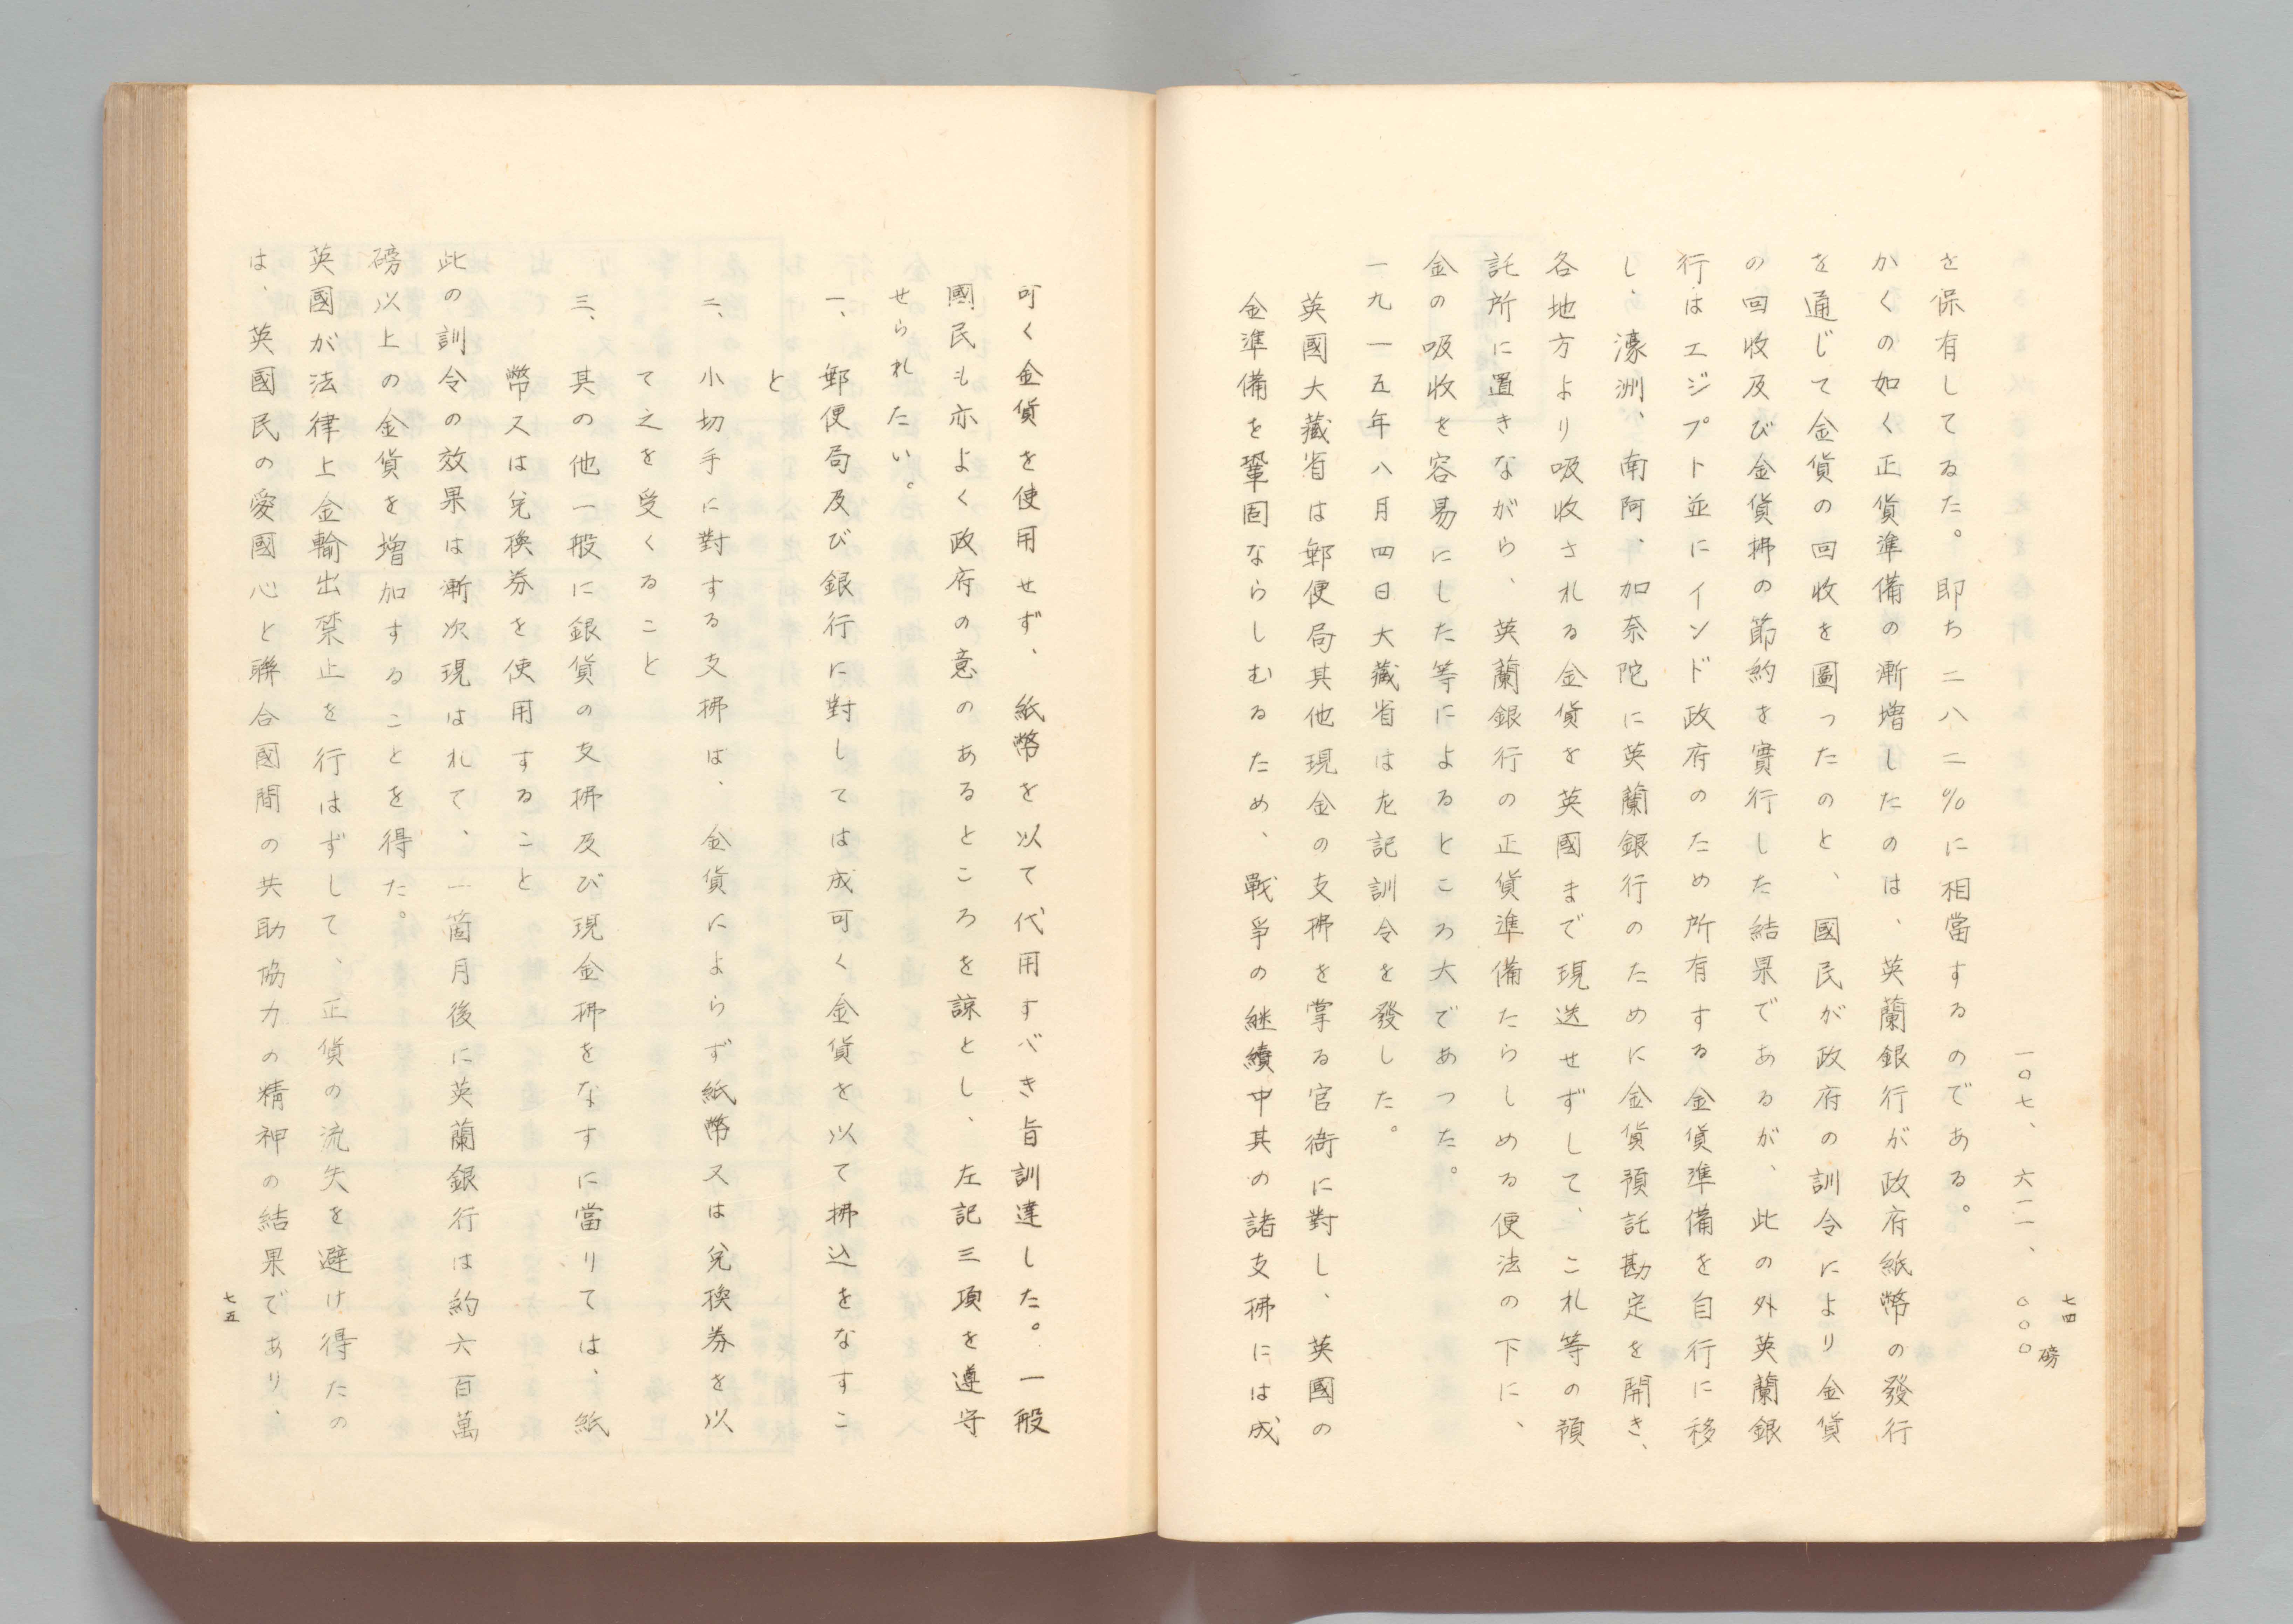 七四
一〇七、六二一、〇〇〇磅
を保有してゐた。即ち二八二％に相當するのである。
かくの如く正貨準備の漸增したのは、英蘭銀行が政府紙幣の發行
を通じて金貨の回收を圖つたのと、國民が政府の訓令により金貨
の回收及び金貨拂の節約を實行した結果であるが、此の外英蘭銀
行はエジプト並にインド政府のため所有する金貨準備を自行に移
し、濠洲、南阿、加奈陀に英蘭銀行のために金貨預託勘定を開き、
各地方より吸收される金貨を英國まで現送せずして、これ等の預
託所に置きながら、英蘭銀行の正貨準備たらしめる便法の下に、
金の吸收を容易にした等によるところ大であつた。
一九一五年八月四日大藏省は左記訓令を發した。
英國大藏省は郵便局其他現金の支拂を掌る官衙に對し、英國の
金準備を鞏固ならしむるため、戰爭の継續中其の諸支拂には成
可く金貨を使用せず、紙幣を以て代用すべき旨訓達した。一般
國民も亦よく政府の意のあるところを諒とし、左記三項を遵守
せられたい。
一、郵便局及び銀行に對しては成可く金貨を以て拂込をなすこ
と
二、小切手に對する支拂は、金貨によらず紙幣又は兌換券を以
て之を受くること
三、其の他一般に銀貨の支拂及び現金拂をなすに當りては、紙
幣又は兌換券を使用すること
此の訓令の效果は漸次現はれて、一箇月後に英蘭銀行は約六百萬
磅以上の金貨を增加することを得た。
英國が法律上金輸出禁止を行はずして、正貨の流失を避け得たの
は、英國民の愛國心と聯合國間の共助協力の精神の結果であり、
七五